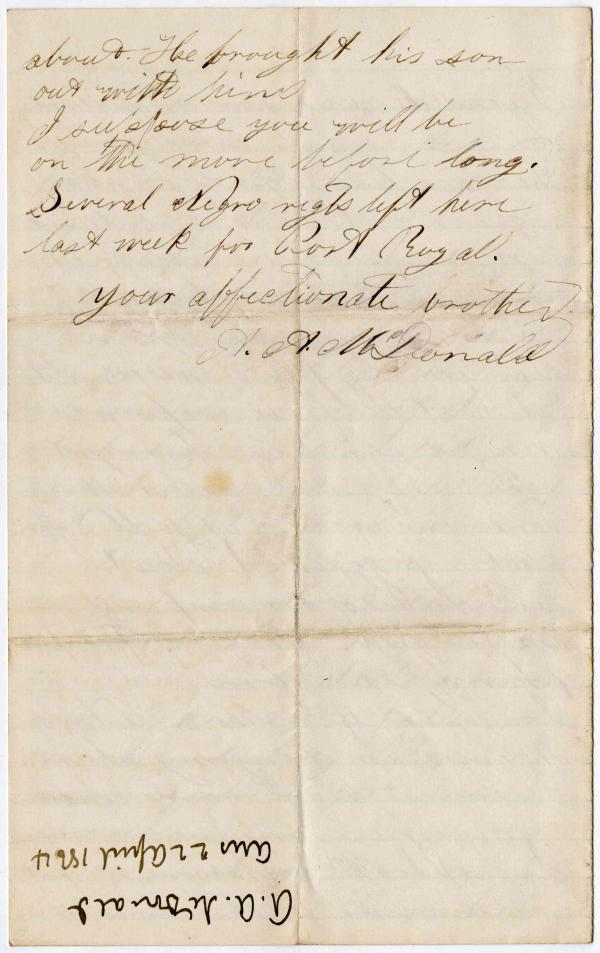 about. He brought his son
out with him
I suppose you will be
on the move before long.
Several Negro regts left here
last week for Port Royal.
Your affectionate brother.
A. A. McDonald
A. A. McDonald
ans 22 April 1864